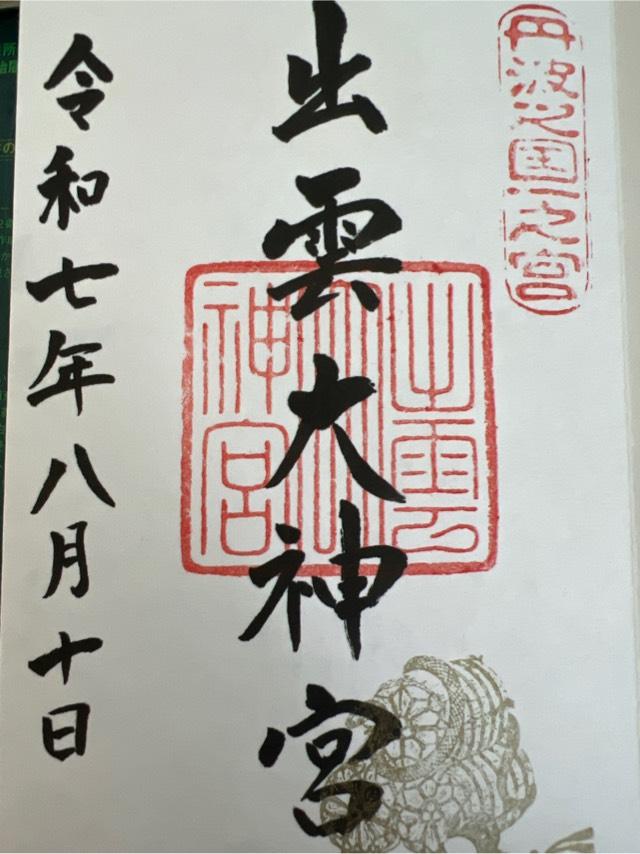 丹波之国一之宮
出雲大神宮
出雲大神宮
令和七年八月十日